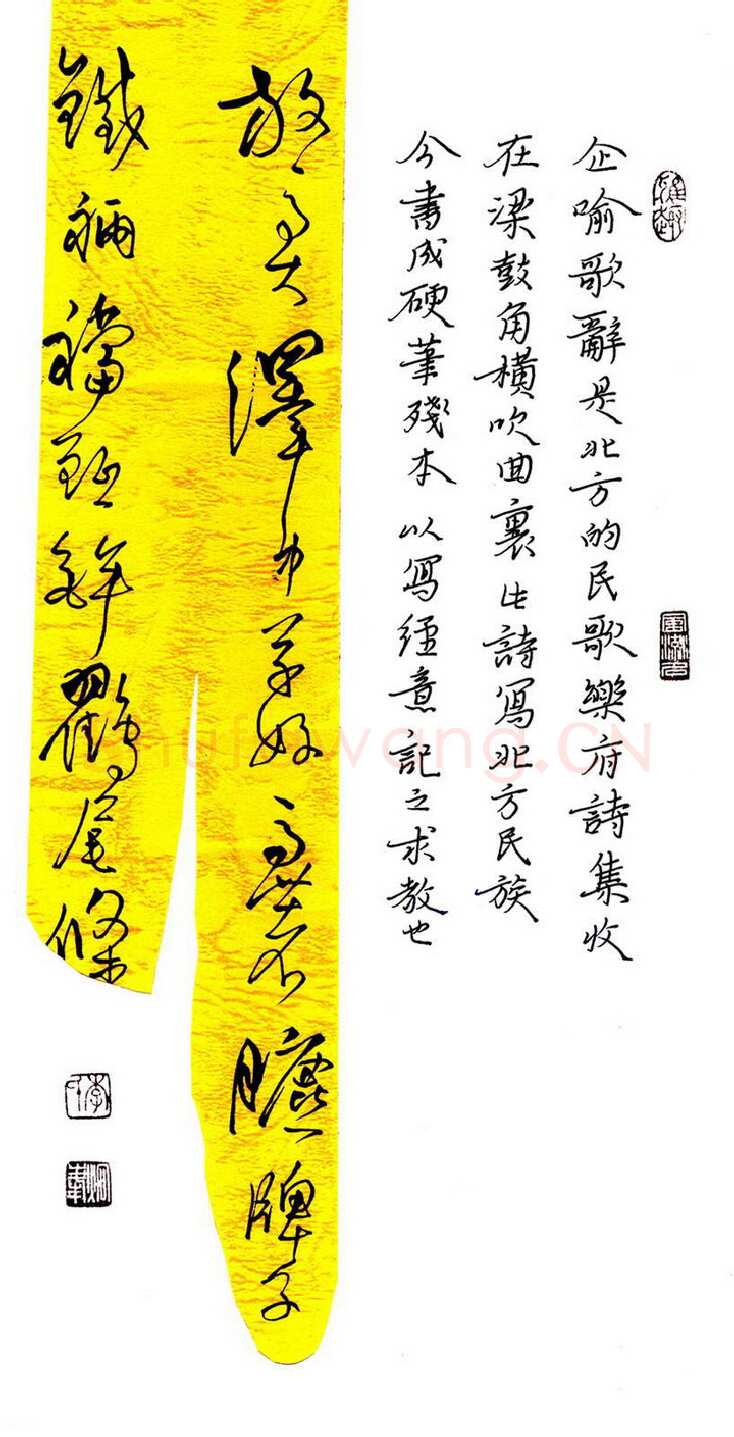 企喻歌辭是北方的民歌樂府詩集收
在梁鼓角橫吹曲裏此詩寫北方民族
今書成硬筆殘本以寫經意記之求教也
放馬大澤中草好馬著臕牌子
鐵裲襠鉾鸐尾條
shufawang.CN